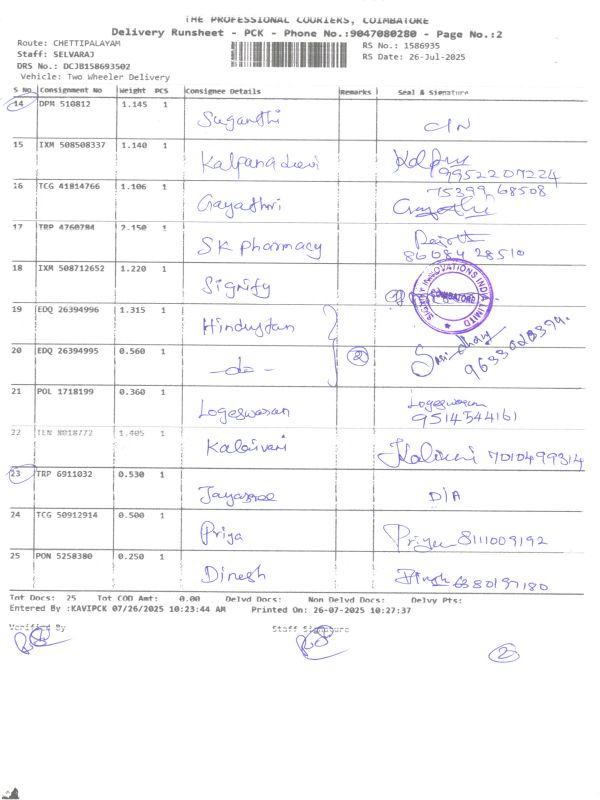 THE PROFESSIONAL COURIERS, COIMBATORE
Delivery Runsheet - PCK - Phone No.:9047080280 - Page No.:2
Route: CHETTIPALAYAM
RS No.: 1586935
Staff: SELVARAJ
RS Date: 26-Jul-2025
DRS No.: DCJB158693502
Vehicle: Two Wheeler Delivery
S No. Consignment No Weight PCS Consignee Details Remarks Seal & Signature
14 DPM 510812 1.145 1 Suganthi
15 IXM 508508337 1.140 1 Kalpana devi 9952207224
16 TCG 41814766 1.106 1 Gayathri 75399 68508
17 TRP 4760784 2.150 1 SK pharmacy 86084 28510
18 IXM 508712652 1.220 1 Signify
SIGNIFY INNOVATIONS INDIA LIMITED
COIMBATORE
19 EDQ 26394996 1.315 1 Hindustan
20 EDQ 26394995 0.560 1 -do- 2
21 POL 1718199 0.360 1 Logeswaran Logeswaran
9514544161
22 TEN 8018772 1.405 1 Kalaivani 7010499314
23 TRP 6911032 0.530 1 Jayasree D/A
24 TCG 50912914 0.500 1 Priya Priya 8111009192
25 PON 5258380 0.250 1 Dinesh 6380197180
Tot Docs: 25 Tot COD Amt: 0.00 Delvd Docs: Non Delvd Docs: Delvy Pts:
Entered By :KAVIPCK 07/26/2025 10:23:44 AM Printed On: 26-07-2025 10:27:37
Verified By Staff Signature
2